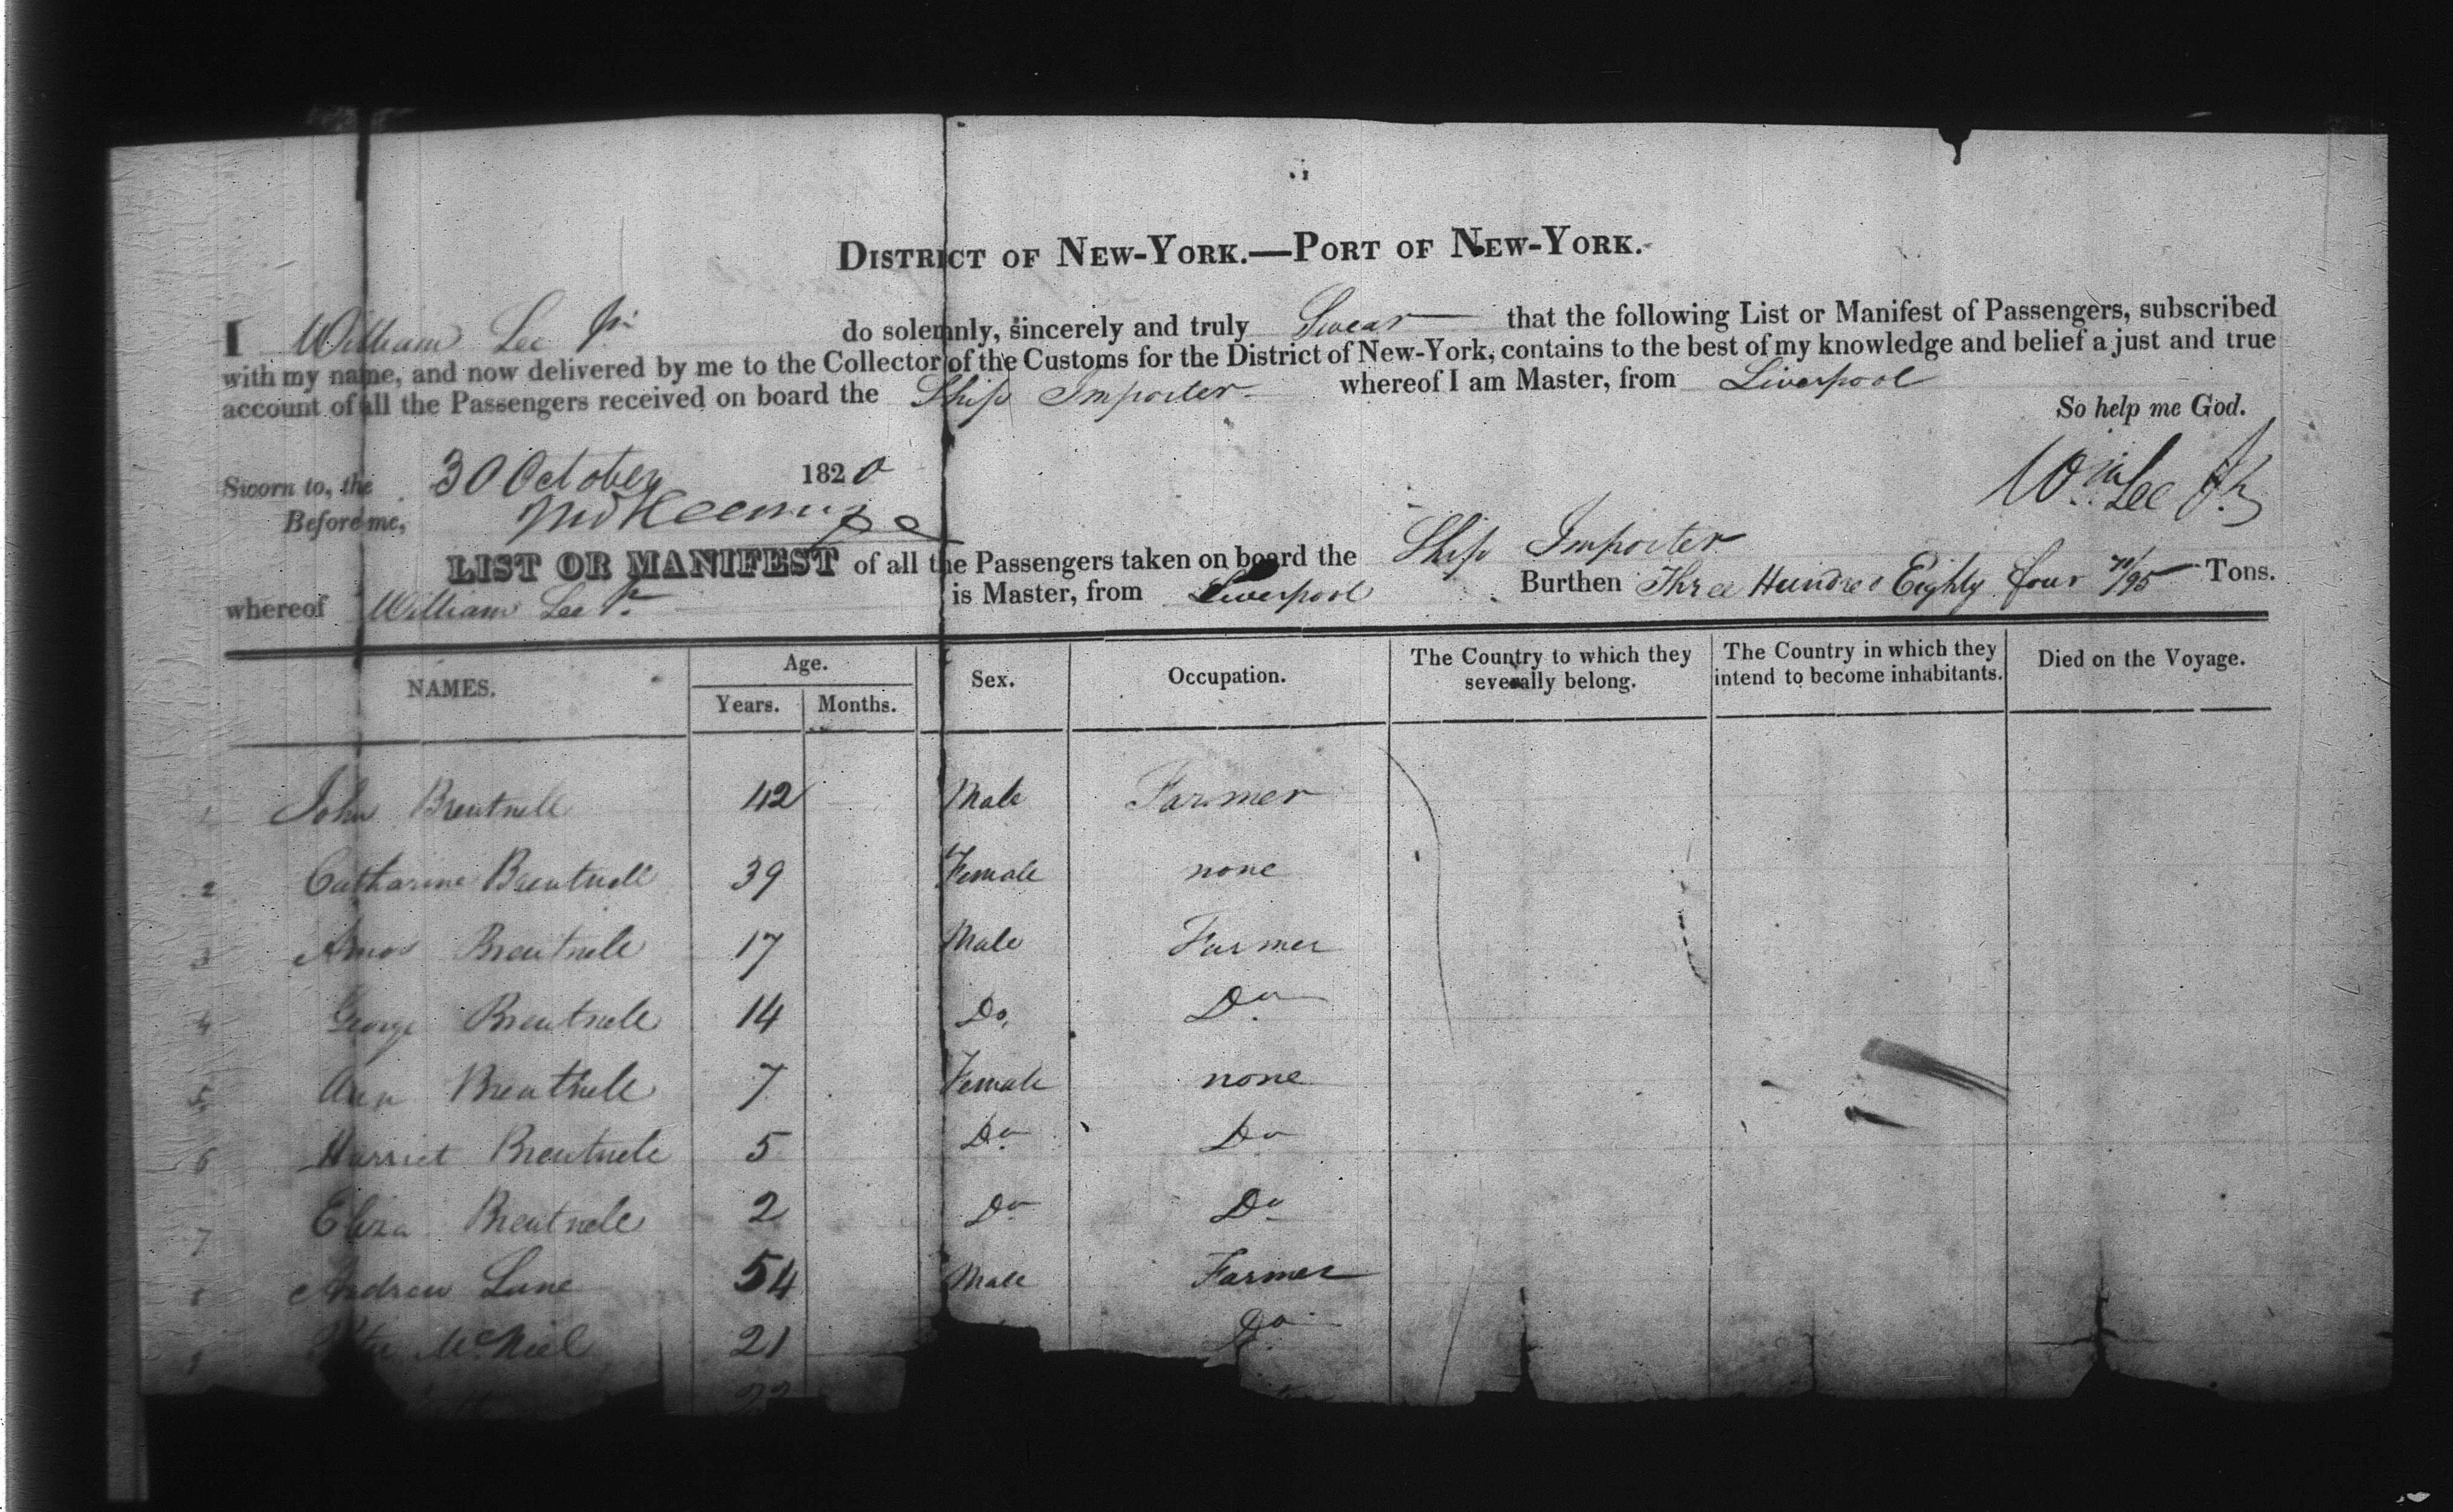 DISTRICT OF NEW-YORK.—PORT OF NEW-YORK.
I William Lee Jr. do solemnly, sincerely and truly Swear that the following List or Manifest of Passengers, subscribed
with my name, and now delivered by me to the Collector of the Customs for the District of New-York, contains to the best of my knowledge and belief a just and true
account of all the Passengers received on board the Ship Importer whereof I am Master, from Liverpool
So help me God.
Sworn to, the 30 October 1820
Before me,
Wm Lee Jr
LIST OR MANIFEST of all the Passengers taken on board the Ship Importer
whereof William Lee Jr. is Master, from Liverpool Burthen Three Hundred Eighty four 70/95 Tons.
NAMES. Age. Years. Months. Sex. Occupation. The Country to which they severally belong. The Country in which they intend to become inhabitants. Died on the Voyage.
1 John Brentnell 42 Male Farmer
2 Catharine Brentnell 39 Female none
3 Amos Brentnell 17 Male Farmer
4 George Brentnell 14 Do. Do.
5 Ann Brentnell 7 Female none
6 Harriet Brentnell 5 Do. Do
7 Eliza Brentnell 2 Do. Do.
8 Andrew Lane 54 Male Farmer
9 McNeil 21 Do.